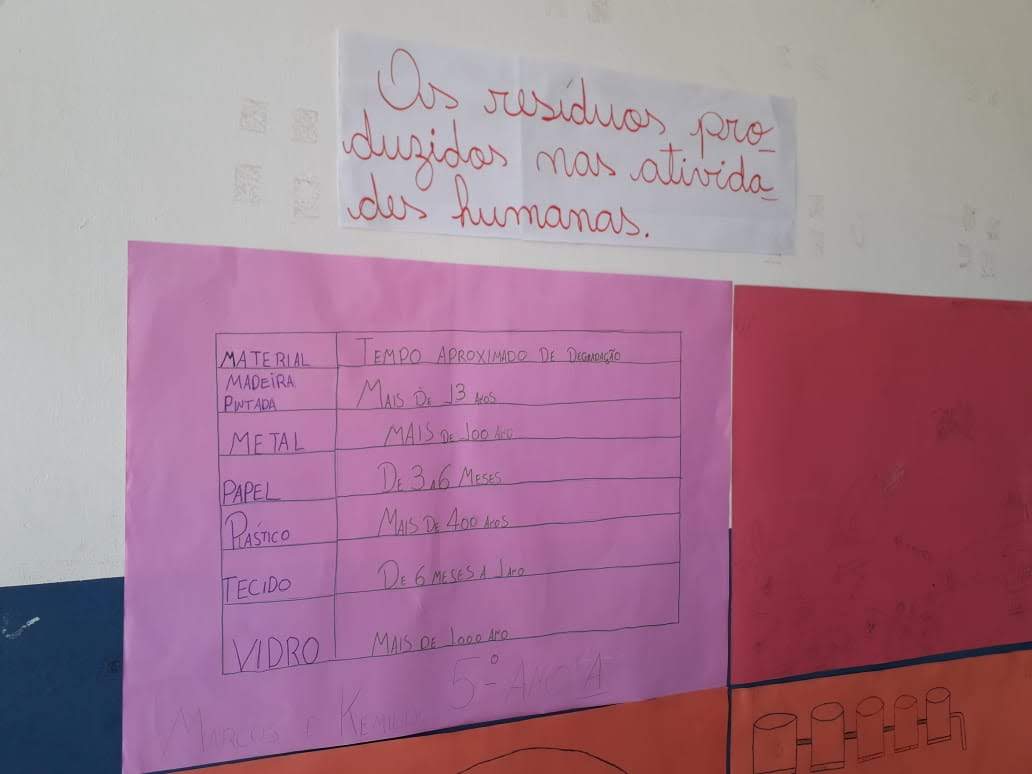 Os resíduos pro-
duzidos nas ativida-
des humanas.
MATERIAL TEMPO APROXIMADO DE DEGRADAÇÃO
MADEIRA
PINTADA MAIS DE 13 ANOS
METAL MAIS DE 100 ANO
PAPEL DE 3 A 6 MESES
PLÁSTICO MAIS DE 400 ANOS
TECIDO DE 6 MESES A 1 ANO
VIDRO MAIS DE 1000 ANO
5º ANO A
MARCOS E